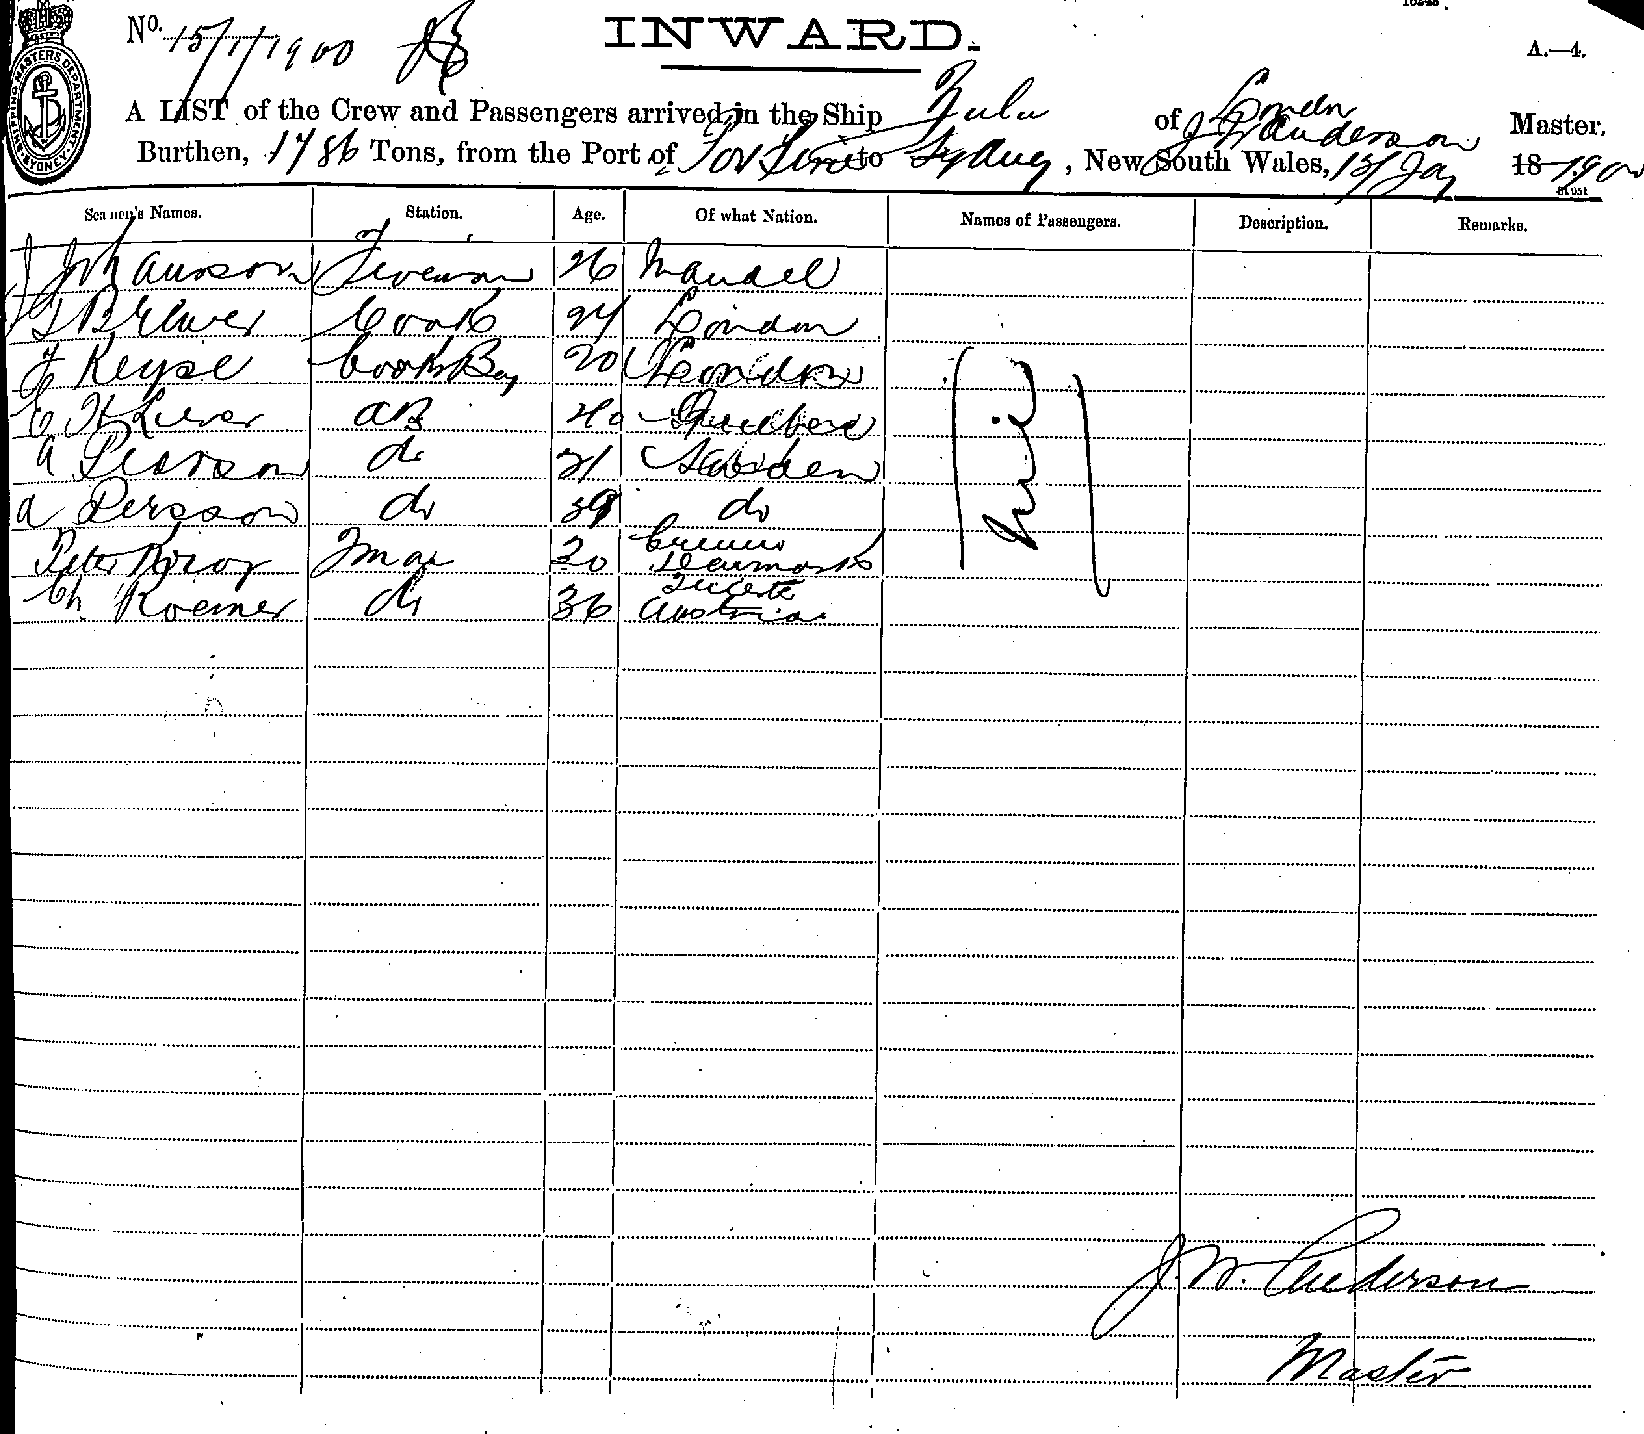 No. 15/1/1900
INWARD.
A.—4.
A LIST of the Crew and Passengers arrived in the Ship Zulu of London J W Anderson Master,
Burthen, 1786 Tons, from the Port of to Sydney, New South Wales, 15/ Jay 18 1900
Seamen's Names. Station. Age. Of what Nation. Names of Passengers. Description. Remarks.
J Johansson Fireman 26 Mandel
Brewer Cook 24 London
Keyse Cooks Boy 20 London
AB 40
A Pearson do 21 Sweden
A Persson do 39 do
Peter 20 Denmark
Ch. Roemer do 36 Trieste Austria
Nil
J. W. Anderson
Master